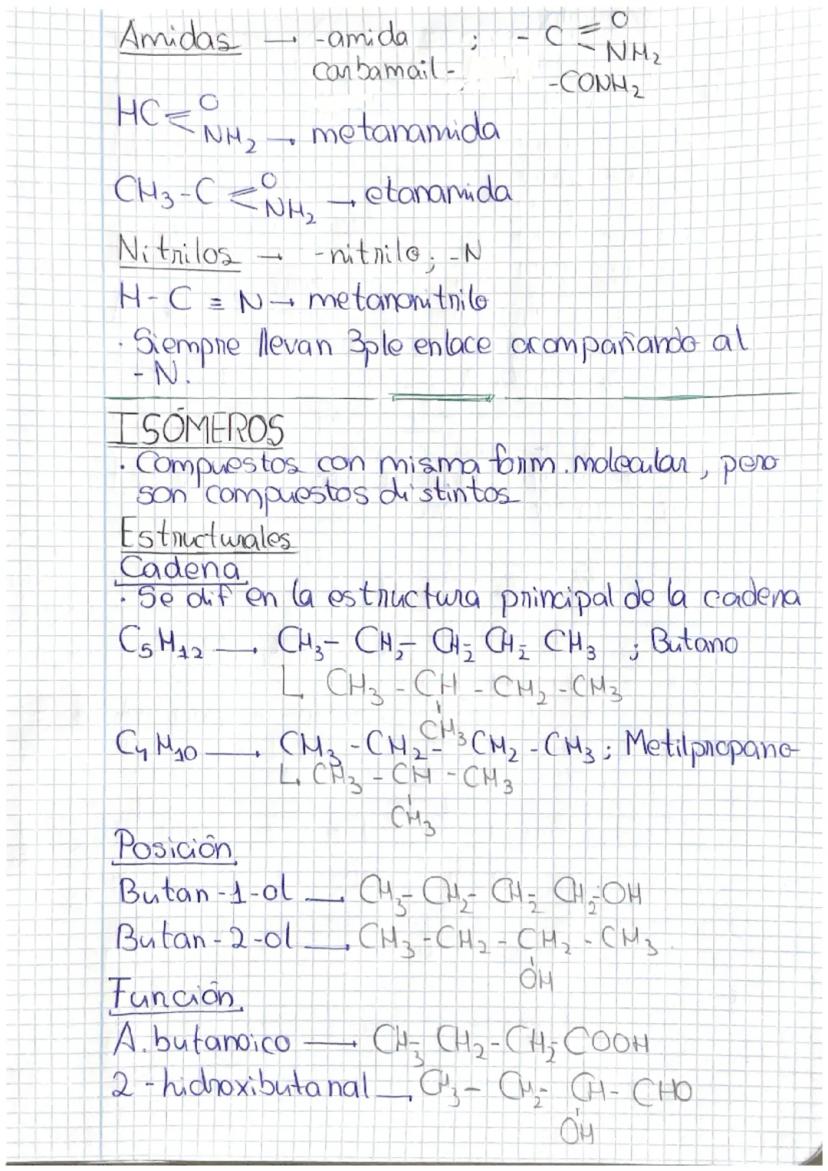 Amidas → -amida ; - C = O
NH2
Carbamail - -CONH2
HC = O
NH2 → metanamida
CH3-C = O
NH2 → etanamida
Nitrilos → -nitrilo; -N
H-C ≡ N → metanonitrilo
· Siempre llevan 3ple enlace acompañando al
-N.
ISÓMEROS
· Compuestos con misma form. molecular, pero
son compuestos distintos
Estructurales
Cadena
· Se dif en la estructura principal de la cadena
C5H12 → CH3- CH2- CH2 CH2 CH3 ; Butano
↳ CH3 - CH - CH2 - CH3
CH3
C4H10 → CH3 - CH2 - CH2 - CH3 ; Metilpropano
↳ CH3 - CH - CH3
CH3
Posición
Butan-1-ol → CH3- CH2- CH2 CH2-OH
Butan-2-ol → CH3-CH2 - CH2 - CH3
OH
Función
A. butanoico → CH3 CH2-CH2-COOH
2-hidroxibutanal → CH3- CH2- CH- CHO
OH